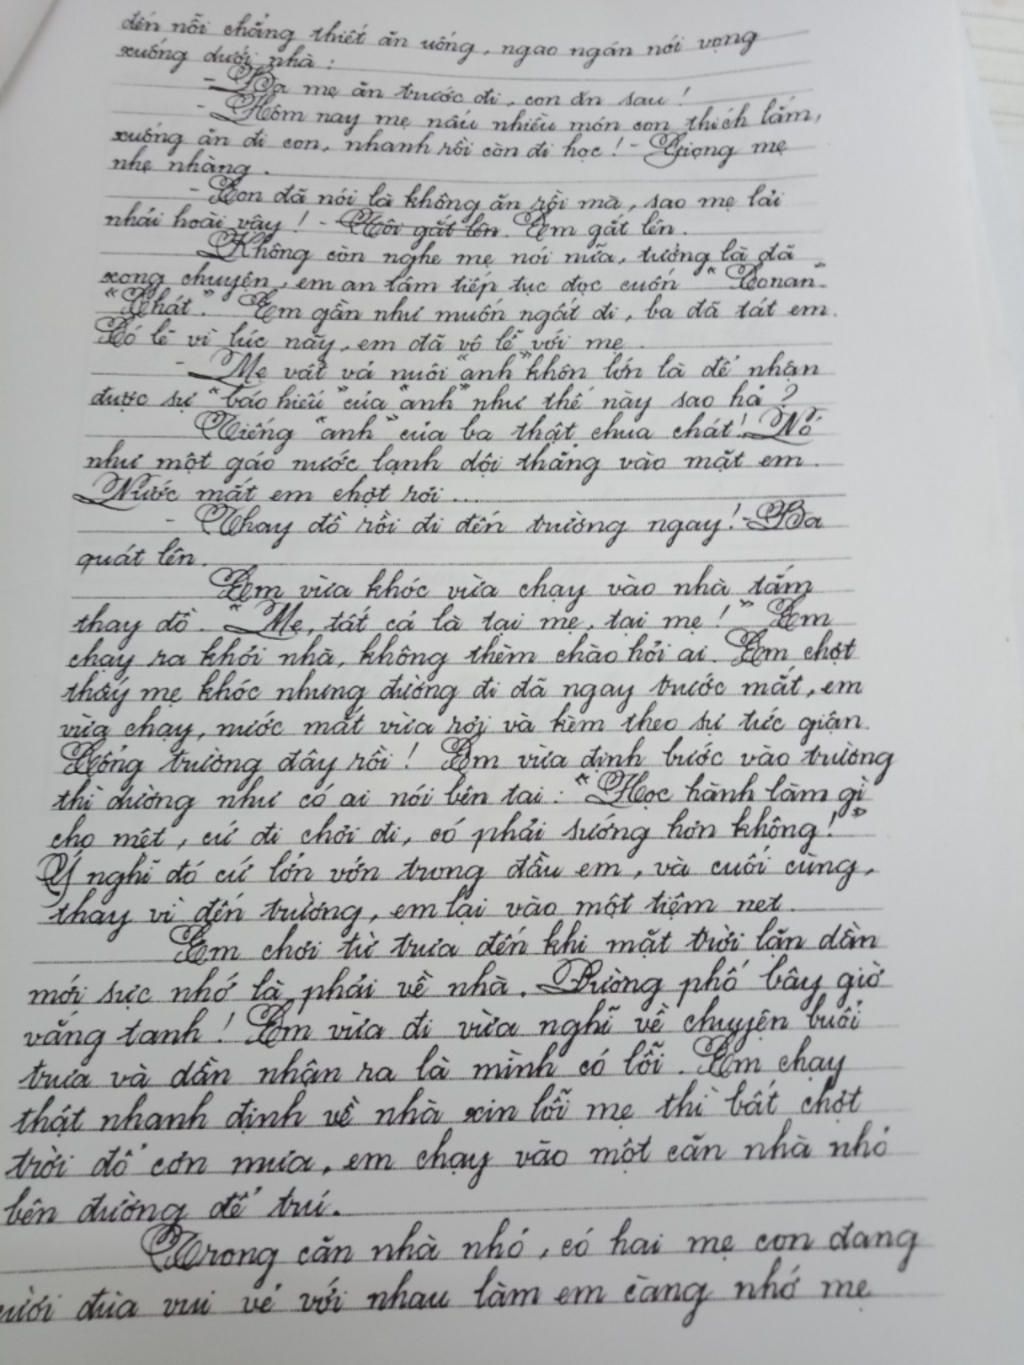 đến nỗi chẳng thiết ăn uống, ngao ngán nói vọng
xuống dưới nhà :
- Ba mẹ ăn trước đi, con ăn sau !
- Hôm nay mẹ nấu nhiều món con thích lắm,
xuống ăn đi con, nhanh rồi còn đi học ! - Giọng mẹ
nhẹ nhàng .
- Con đã nói là không ăn rồi mà, sao mẹ lải
nhải hoài vậy ! - Tôi gắt lên. Em gắt lên .
Không còn nghe mẹ nói nữa, tưởng là đã
xong chuyện, em an tâm tiếp tục đọc cuốn " Conan "
"Chát ". Em gần như muốn ngất đi, ba đã tát em.
Có lẽ vì lúc nãy, em đã vô lễ với mẹ .
- Mẹ vất vả nuôi "anh" khôn lớn là để nhận
được sự "báo hiếu" của "anh" như thế này sao hả ?
Tiếng "anh" của ba thật chua chát ! Nó
như một gáo nước lạnh dội thẳng vào mặt em .
Nước mắt em chợt rơi ...
- Thay đồ rồi đi đến trường ngay ! - Ba
quát lên .
Em vừa khóc vừa chạy vào nhà tắm
thay đồ . "Mẹ, tất cả là tại mẹ, tại mẹ ! " Em
chạy ra khỏi nhà, không thèm chào hỏi ai. Em chợt
thấy mẹ khóc nhưng đường đi đã ngay trước mắt, em
vừa chạy, nước mắt vừa rơi và kèm theo sự tức giận.
Cổng trường đây rồi ! Em vừa định bước vào trường
thì dường như có ai nói bên tai : "Học hành làm gì
cho mệt, cứ đi chơi đi, có phải sướng hơn không ! "
Ý nghĩ đó cứ lởn vởn trong đầu em, và cuối cùng,
thay vì đến trường, em lại vào một tiệm net .
Em chơi từ trưa đến khi mặt trời lặn dần
mới sực nhớ là phải về nhà. Đường phố bây giờ
vắng tanh ! Em vừa đi vừa nghĩ về chuyện buổi
trưa và dần nhận ra là mình có lỗi . Em chạy
thật nhanh định về nhà xin lỗi mẹ thì bất chợt
trời đổ cơn mưa, em chạy vào một căn nhà nhỏ
bên đường để trú.
Trong căn nhà nhỏ, có hai mẹ con đang
cười đùa vui vẻ với nhau làm em càng nhớ mẹ